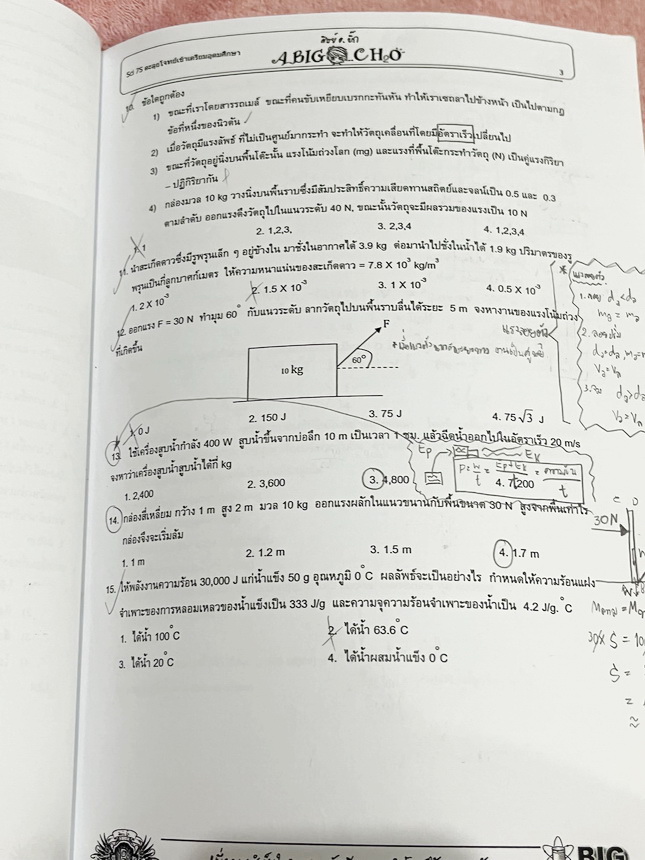 Sci 75 ตะลุยโจทย์เข้าเตรียมอุดมศึกษา
A BIG CH2O
3
10. ข้อใดถูกต้อง
1) ขณะที่เราโดยสารรถเมล์ ขณะที่คนขับเหยียบเบรกกะทันหัน ทำให้เราเซถลาไปข้างหน้า เป็นไปตามกฎ
ข้อที่หนึ่งของนิวตัน
2) เมื่อวัตถุมีแรงลัพธ์ ที่ไม่เป็นศูนย์มากระทำ จะทำให้วัตถุเคลื่อนที่โดยมีอัตราเร็วเปลี่ยนไป
3) ขณะที่วัตถุอยู่นิ่งบนพื้นโต๊ะนั้น แรงโน้มถ่วงโลก (mg) และแรงที่พื้นโต๊ะกระทำวัตถุ (N) เป็นคู่แรงกิริยา
– ปฏิกิริยากัน
4) กล่องมวล 10 kg วางนิ่งบนพื้นราบซึ่งมีสัมประสิทธิ์ความเสียดทานสถิตย์และจลน์เป็น 0.5 และ 0.3
ตามลำดับ ออกแรงดึงวัตถุไปในแนวระดับ 40 N, ขณะนั้นวัตถุจะมีผลรวมของแรงเป็น 10 N
1. 1 2. 1,2,3, 3. 2,3,4 4. 1,2,3,4
11. นำสะเก็ดดาวซึ่งมีรูพรุนเล็ก ๆ อยู่ข้างใน มาชั่งในอากาศได้ 3.9 kg ต่อมานำไปชั่งในน้ำได้ 1.9 kg ปริมาตรของรู
พรุนเป็นกี่ลูกบาศก์เมตร ให้ความหนาแน่นของสะเก็ดดาว = 7.8 X 10³ kg/m³
1. 2 X 10⁻³ 2. 1.5 X 10⁻³ 3. 1 X 10⁻³ 4. 0.5 X 10⁻³
12. ออกแรง F = 30 N ทำมุม 60° กับแนวระดับ ลากวัตถุไปบนพื้นราบลื่นได้ระยะ 5 m จงหางานของแรงโน้มถ่วง
ที่เกิดขึ้น
F
60°
10 kg
1. 0 J 2. 150 J 3. 75 J 4. 75√3 J
13. ใช้เครื่องสูบน้ำกำลัง 400 W สูบน้ำขึ้นจากบ่อลึก 10 m เป็นเวลา 1 ชม. แล้วฉีดน้ำออกไปในอัตราเร็ว 20 m/s
จงหาว่าเครื่องสูบน้ำสูบน้ำได้กี่ kg
Ep Ek
P = W/t = Ep+Ek/t =
1. 2,400 2. 3,600 3. 4,800 4. 7,200
14. กล่องสี่เหลี่ยม กว้าง 1 m สูง 2 m มวล 10 kg ออกแรงผลักในแนวขนานกับพื้นขนาด 30 N สูงจากพื้นเท่าไร
กล่องจึงจะเริ่มล้ม
30N
1. 1 m 2. 1.2 m 3. 1.5 m 4. 1.7 m
15. ให้พลังงานความร้อน 30,000 J แก่น้ำแข็ง 50 g อุณหภูมิ 0°C ผลลัพธ์จะเป็นอย่างไร กำหนดให้ความร้อนแฝง
จำเพาะของการหลอมเหลวของน้ำแข็งเป็น 333 J/g และความจุความร้อนจำเพาะของน้ำเป็น 4.2 J/g.°C
1. ได้น้ำ 100°C 2. ได้น้ำ 63.6°C
3. ได้น้ำ 20°C 4. ได้น้ำผสมน้ำแข็ง 0°C
BIG